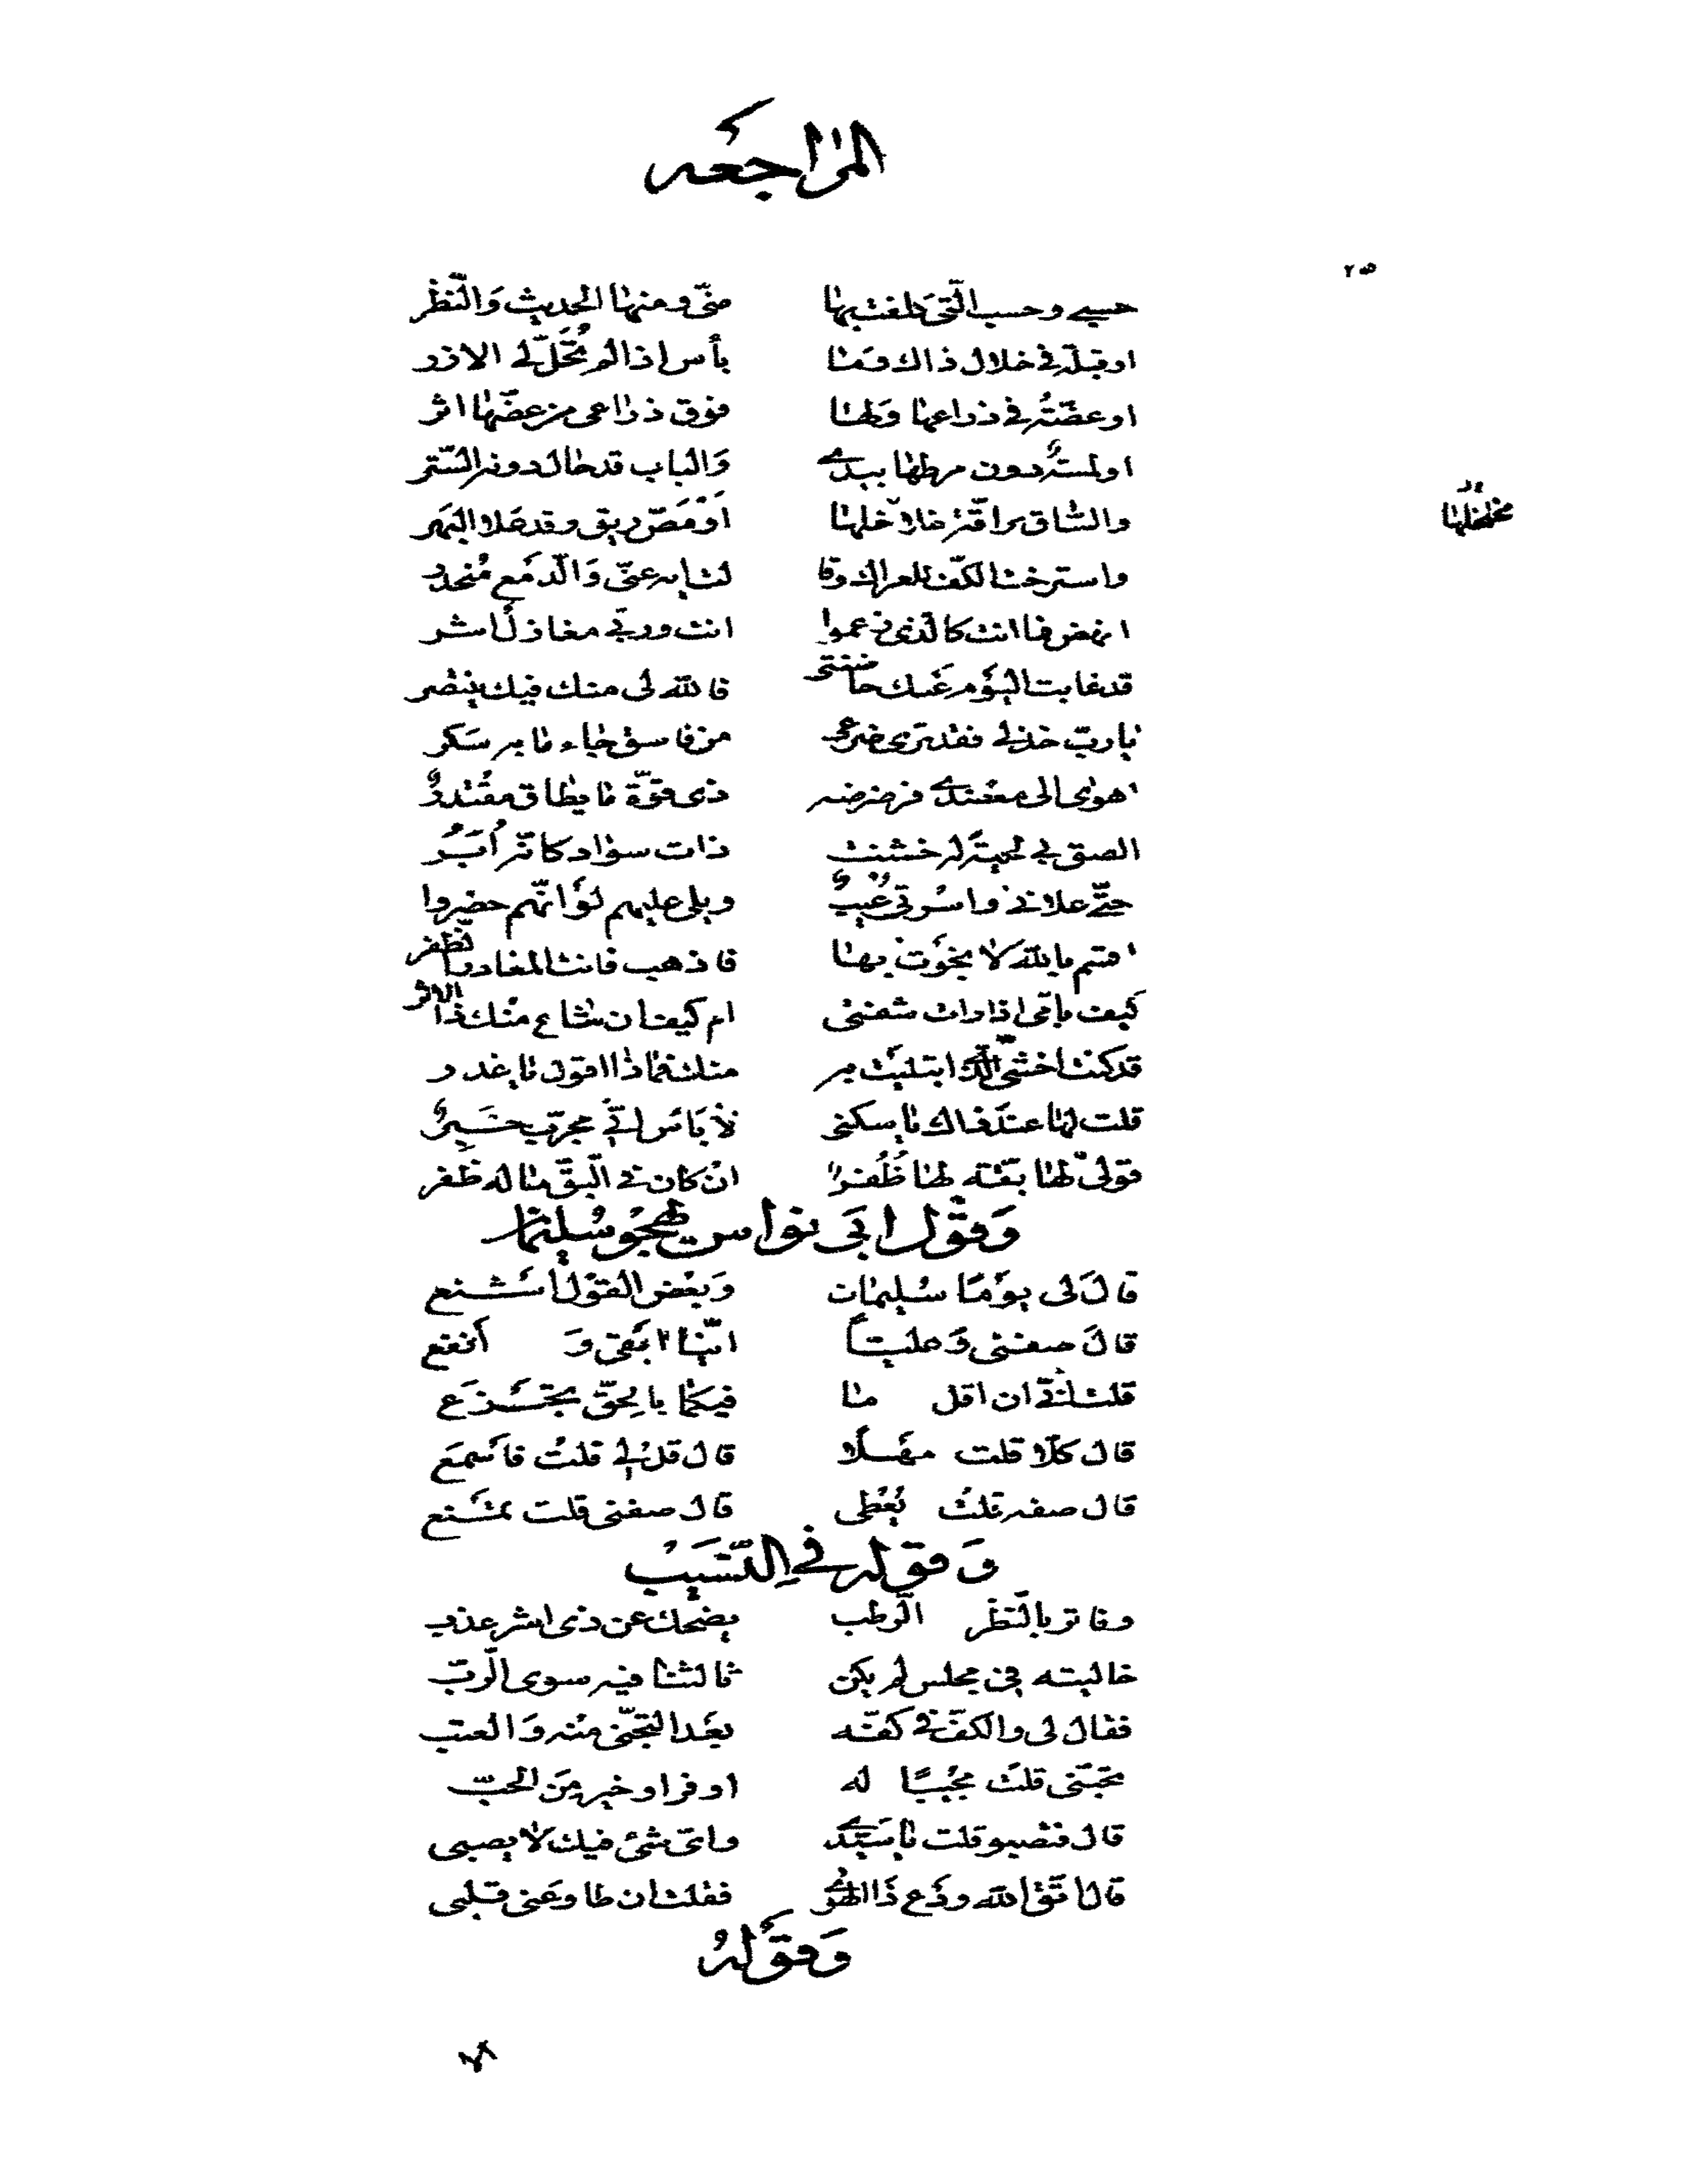 المراجعه
حسبي وحسب الّتي كلفت بها منّي ومنها الحديث وَالنّظر
او قبلة في خلال ذاك وَما بأس اذا لم تُحَلّ لي الازر
او عضّتُه في ذراعها وَلها فوق ذراعي من عضّها اثر
او لمسةٌ دون مرطها بيدي وَالباب قد حال دونه السّتر
والسّاق برّاقة خلاخلها اوْ مَصّ ريق وقد عَلا البَهر
مخلخلها
واسترخت الكفّ للعراك وقا لت ايه عنّي وَالدّمع مُنحدر
انهض فما انت كالّذي زعموا انت وربّي مغازلٌ اشر
قد غابت اليَوْم عَنك حاضنتي فالله لي منك فيك ينتصر
يا ربّ خذ لي فقد ترى ضرعي من فاسق جاء ما به سَكر
اهوى الى معضدي فرضرضه ذي قوّة ما يطاق مقتدرٌ
الصق بي لحيةً له خشنت ذات سواد كانّه أُبَرُ
حتّى علاني واُسْرتي غُيبٌ ويلي عليهم لوَ انّهم حضروا
اقسم بالله لا نجَوت بها فاذهب فانت المغادر الظفر
كيف بامّي اذا رات شفتي ام كيف ان شاع منْك ذا الاثر
قد كنت اخشى الّذي ابتليت به منك فماذا اقول يا غدر
قلت لها عند ذاك يا سكني لا بَاسَ انّي مجرّب خَبِرٌ
قولي لها بقّة لها ظُفُرٌ انْ كان في البقّ ما له ظفر
وَقَوْل ابى نواس يهجُو سُليمان
قالَ لي يوْمًا سُليمان وَبعْضُ القوْل اشْنع
قالَ صفني وَعليّاً ايّنا ابْقى وَ أنفع
قلت انّي ان اقل ما فيكما بالحِقّ تجْزَع
قال كلّا قلت مهْلًا قال قل لي قلتُ فاسْمعَ
قال صفه قلتُ يُعْطي قال صفني قلت تمْنَع
وَقوله في التّشبيب
وفاتر بالنّظر الرّطب يضحك عن ذي اشر عذب
خاليته في مجلس لم يكن ثالثنا فيه سوى الرّبّ
فقال لي والكفّ في كفّه بعْدَ التجنّي منه وَالعتب
تحبّني قلتُ مجُيبًا له اوفر او خير مِنَ الحبّ
قال فتصبو قلت يا سَيّدي وايّ شئ فيك لا يصبى
قال اتّق الله ودَع ذَا الهوى فقلت ان طاوعَني قلبي
وَقوْلهُ